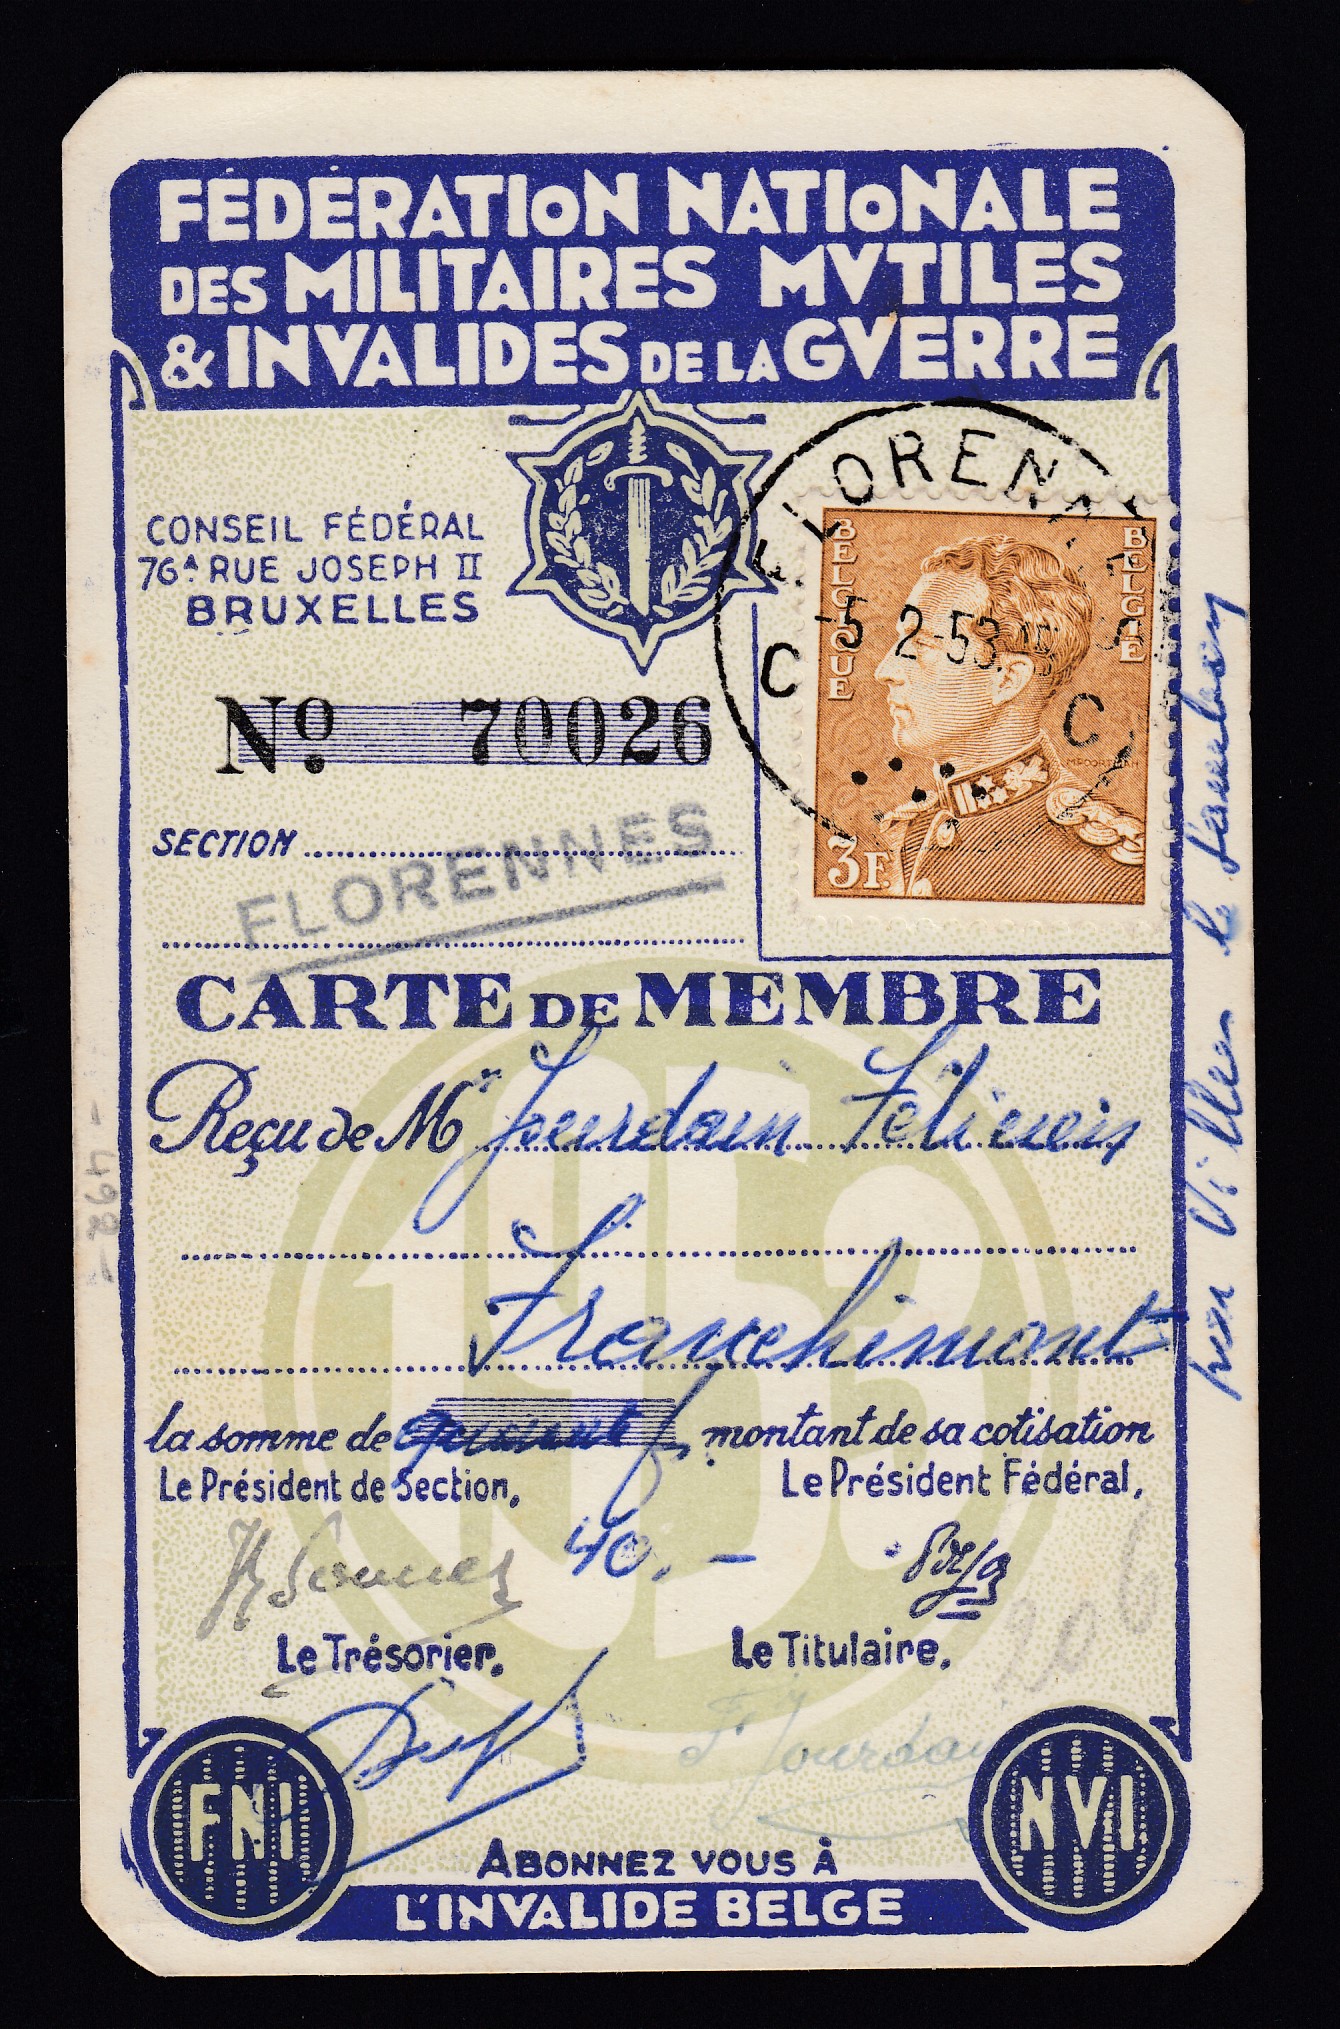 FÉDÉRATION NATIONALE
DES MILITAIRES MVTILES
& INVALIDES DE LA GVERRE
CONSEIL FÉDÉRAL
76A RUE JOSEPH II
BRUXELLES
FLORENNES
-5 2-53
C C
BELGIQUE
BELGIE
3F.
No. 70026
SECTION
FLORENNES
CARTE DE MEMBRE
Reçu de Mr Jourdain Félicien
Franchimont
1953
la somme de montant de sa cotisation
Le Président de Section, Le Président Fédéral,
40.-
Le Trésorier, Le Titulaire,
F Jourdain
FNI
NVI
ABONNEZ VOUS À
L'INVALIDE BELGE
par Villers le Gambon
-298-